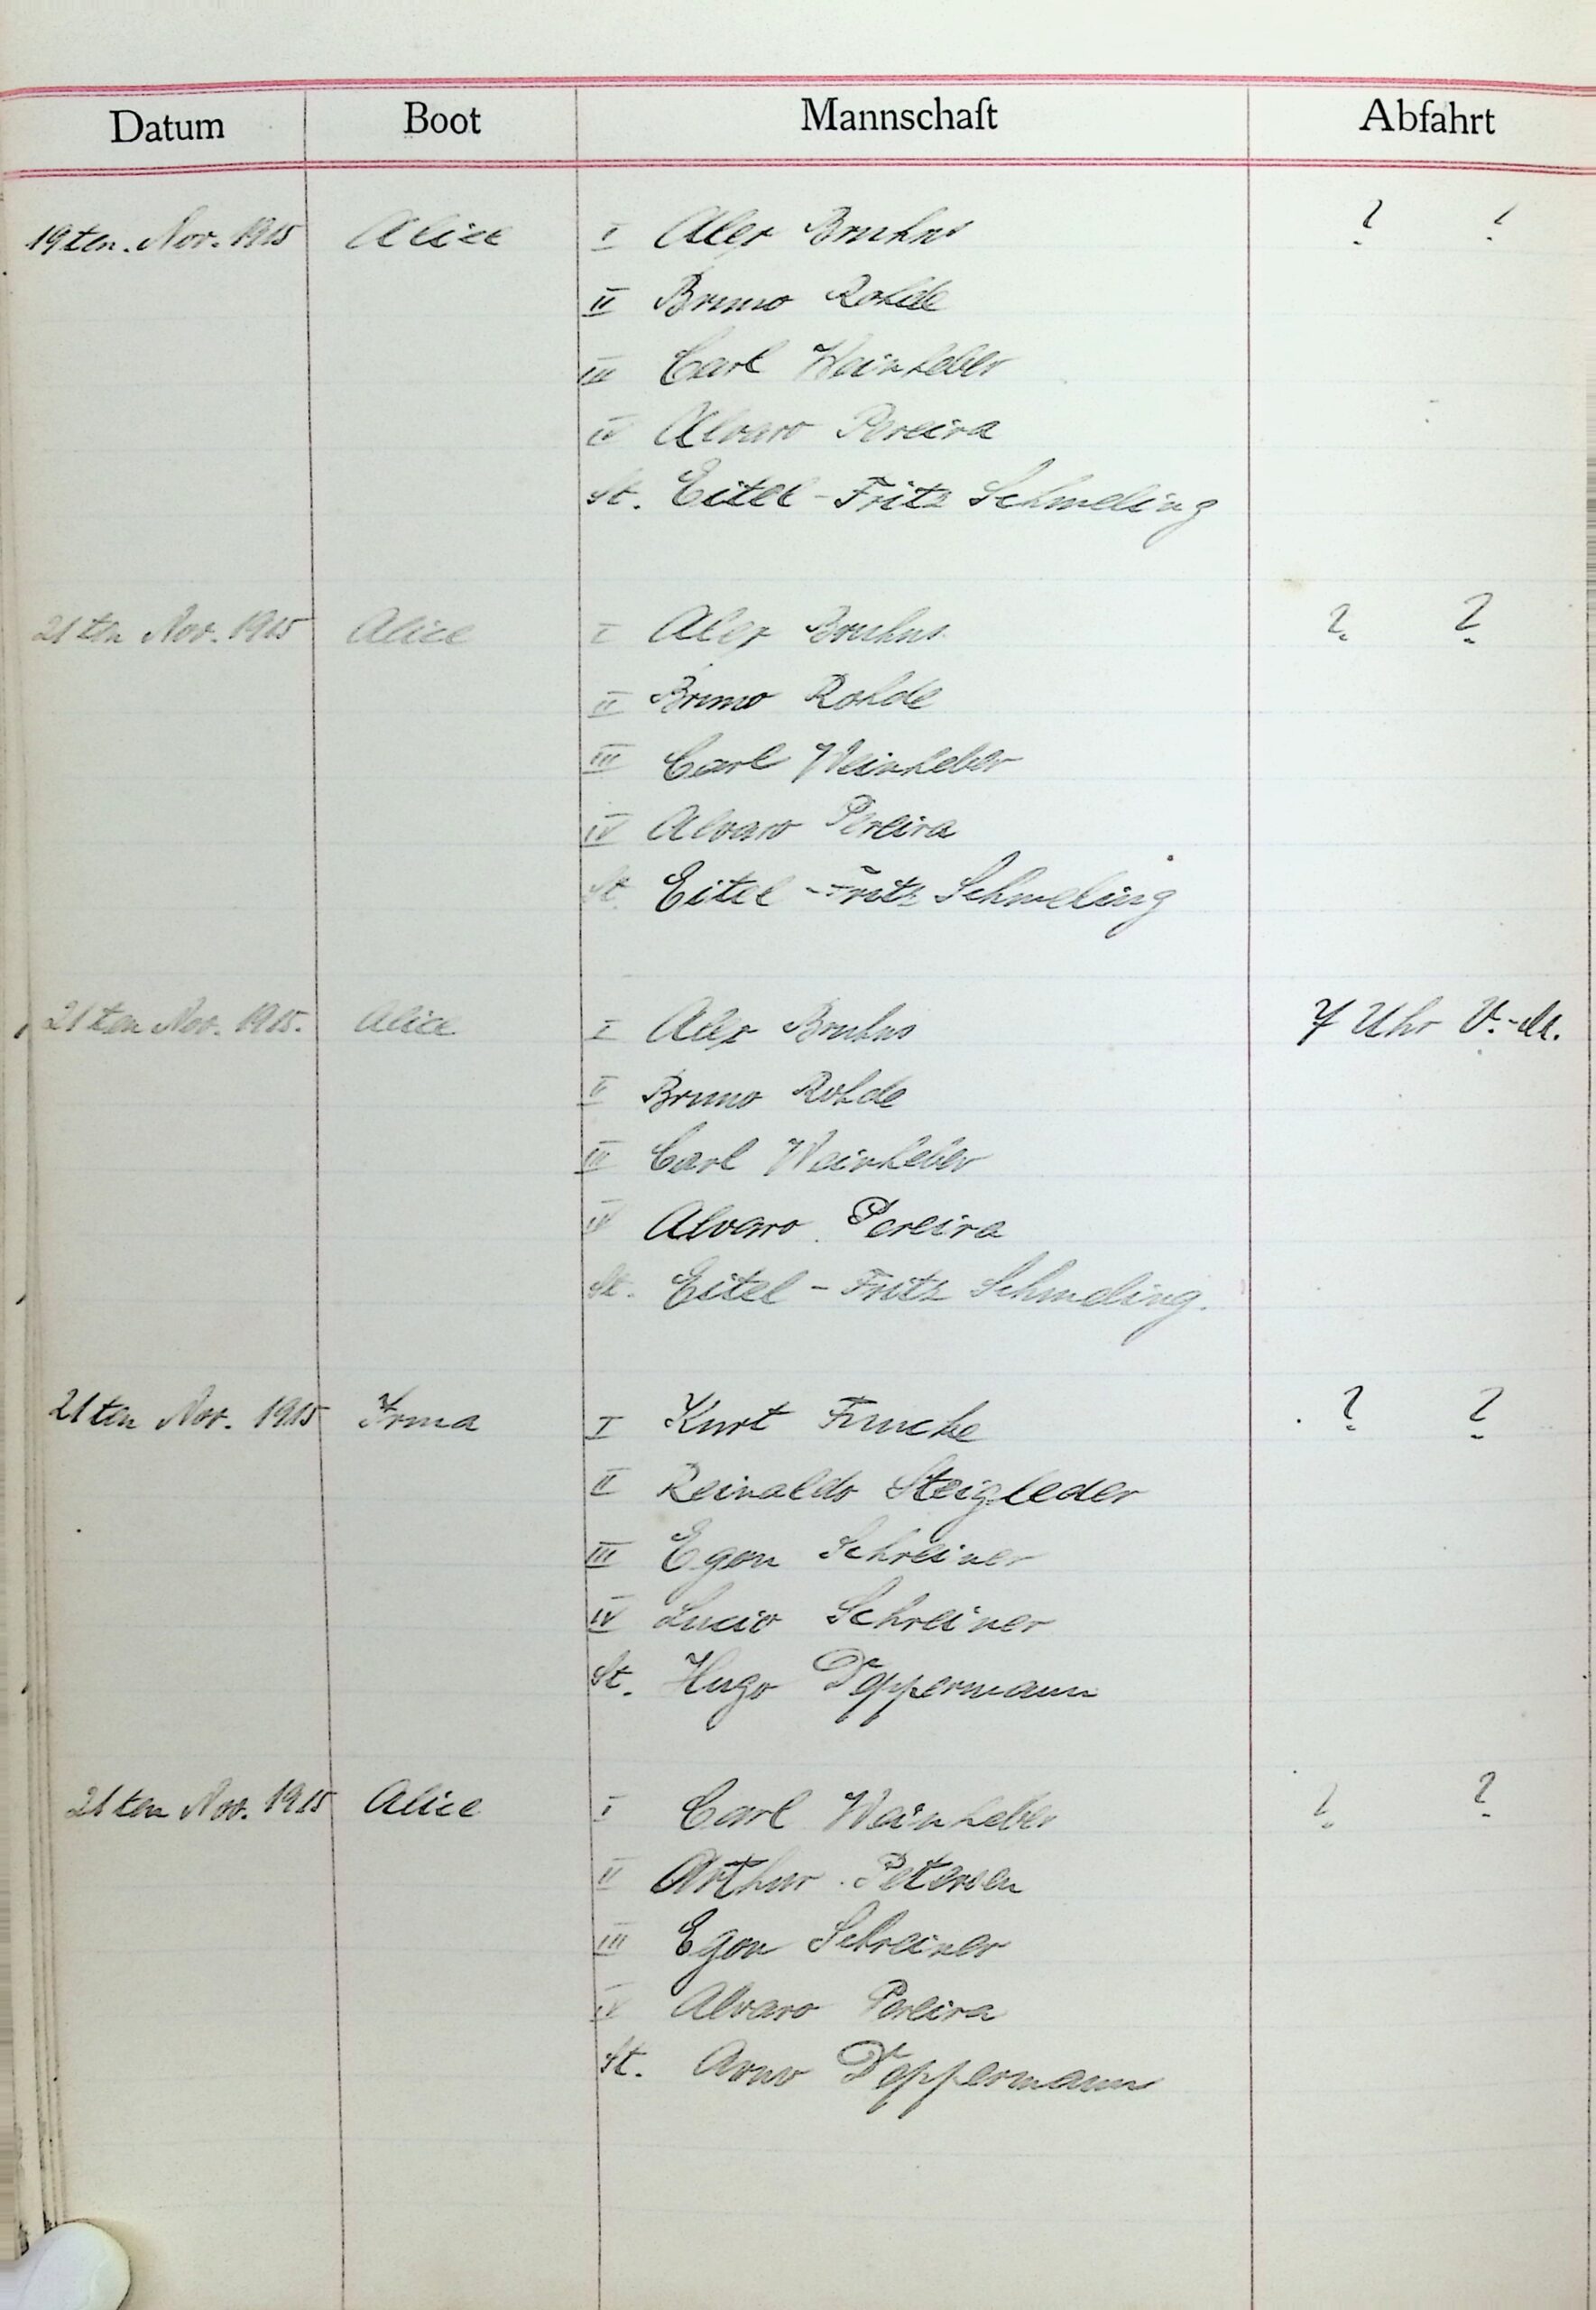 Datum Boot Mannschaft Abfahrt
19ten. Nov. 1915 Alice I Alex Bruhns ? ?
II Bruno Rohde
III Carl Weinheber
IV Alvaro Pereira
St. Eitel-Fritz Schmeling
21ten Nov. 1915 Alice I Alex Bruhns ? ?
II Bruno Rohde
III Carl Weinheber
IV Alvaro Pereira
St. Eitel-Fritz Schmeling
21ten Nov. 1915. Alice I Alex Bruhns 7 Uhr V.-M.
II Bruno Rohde
III Carl Weinheber
IV Alvaro Pereira
St. Eitel-Fritz Schmeling.
21ten Nov. 1915 Irma I Kurt Funcke ? ?
II Reinaldo Steigleder
III Egon Schreiner
IV Lucio Schreiner
St. Hugo Deppermann
21ten Nov. 1915 Alice I Carl Weinheber ? ?
II Arthur Petersen
III Egon Schreiner
IV Alvaro Pereira
St. Arno Deppermann